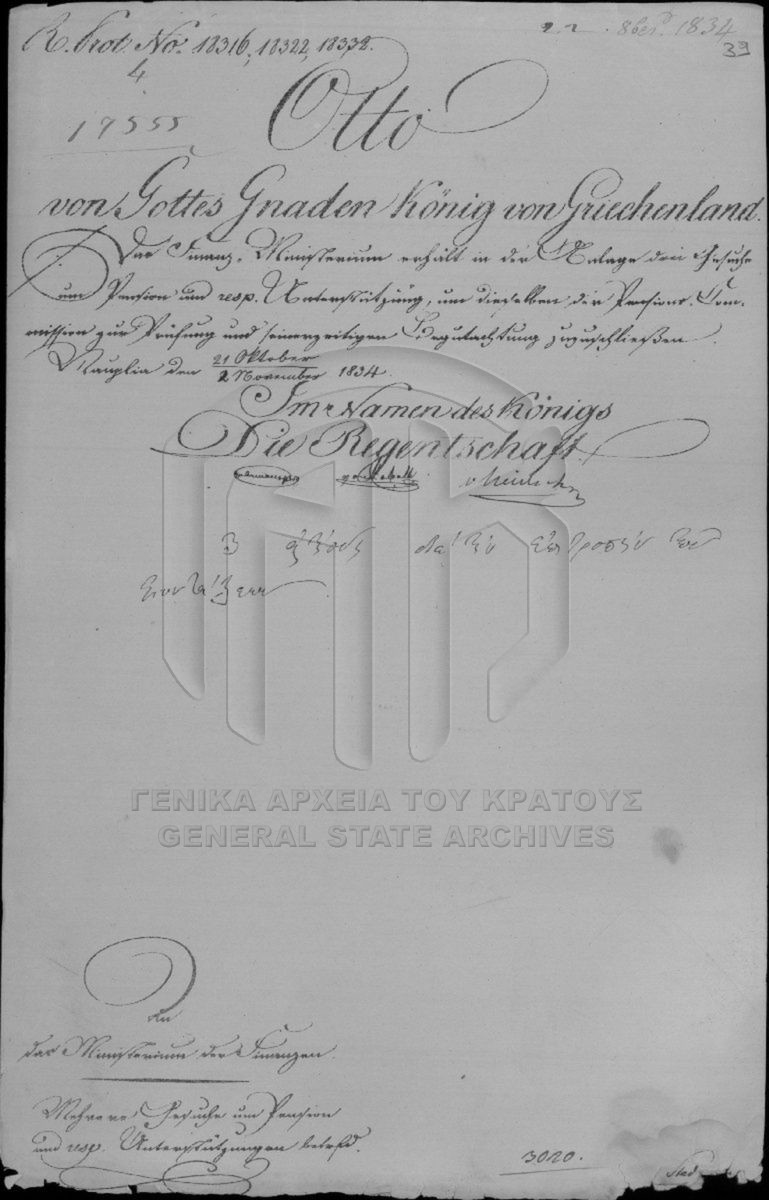 R. Prot No. 18316, 18322, 18332.
8ber 1834
39
4
19555
Otto
von Gottes Gnaden König von Griechenland.
Das Finanz-Ministerium erhält in der Anlage drei Gesuche
um Pension und resp. Unterstützung, um dieselben der Pensions-Com-
mission zur Prüfung und seinerzeitigen Begutachtung zuzuschließen.
Nauplia den 21 Oktober / 2 November 1834.
Im Namen des Königs
Die Regentschaft
3 διὰ τὴν ἐπιτροπὴν
ΓΕΝΙΚΑ ΑΡΧΕΙΑ ΤΟΥ ΚΡΑΤΟΥΣ
GENERAL STATE ARCHIVES
An
das Ministerium der Finanzen.
Mehrere Gesuche um Pension
und resp. Unterstützungen betrfd.
3020.